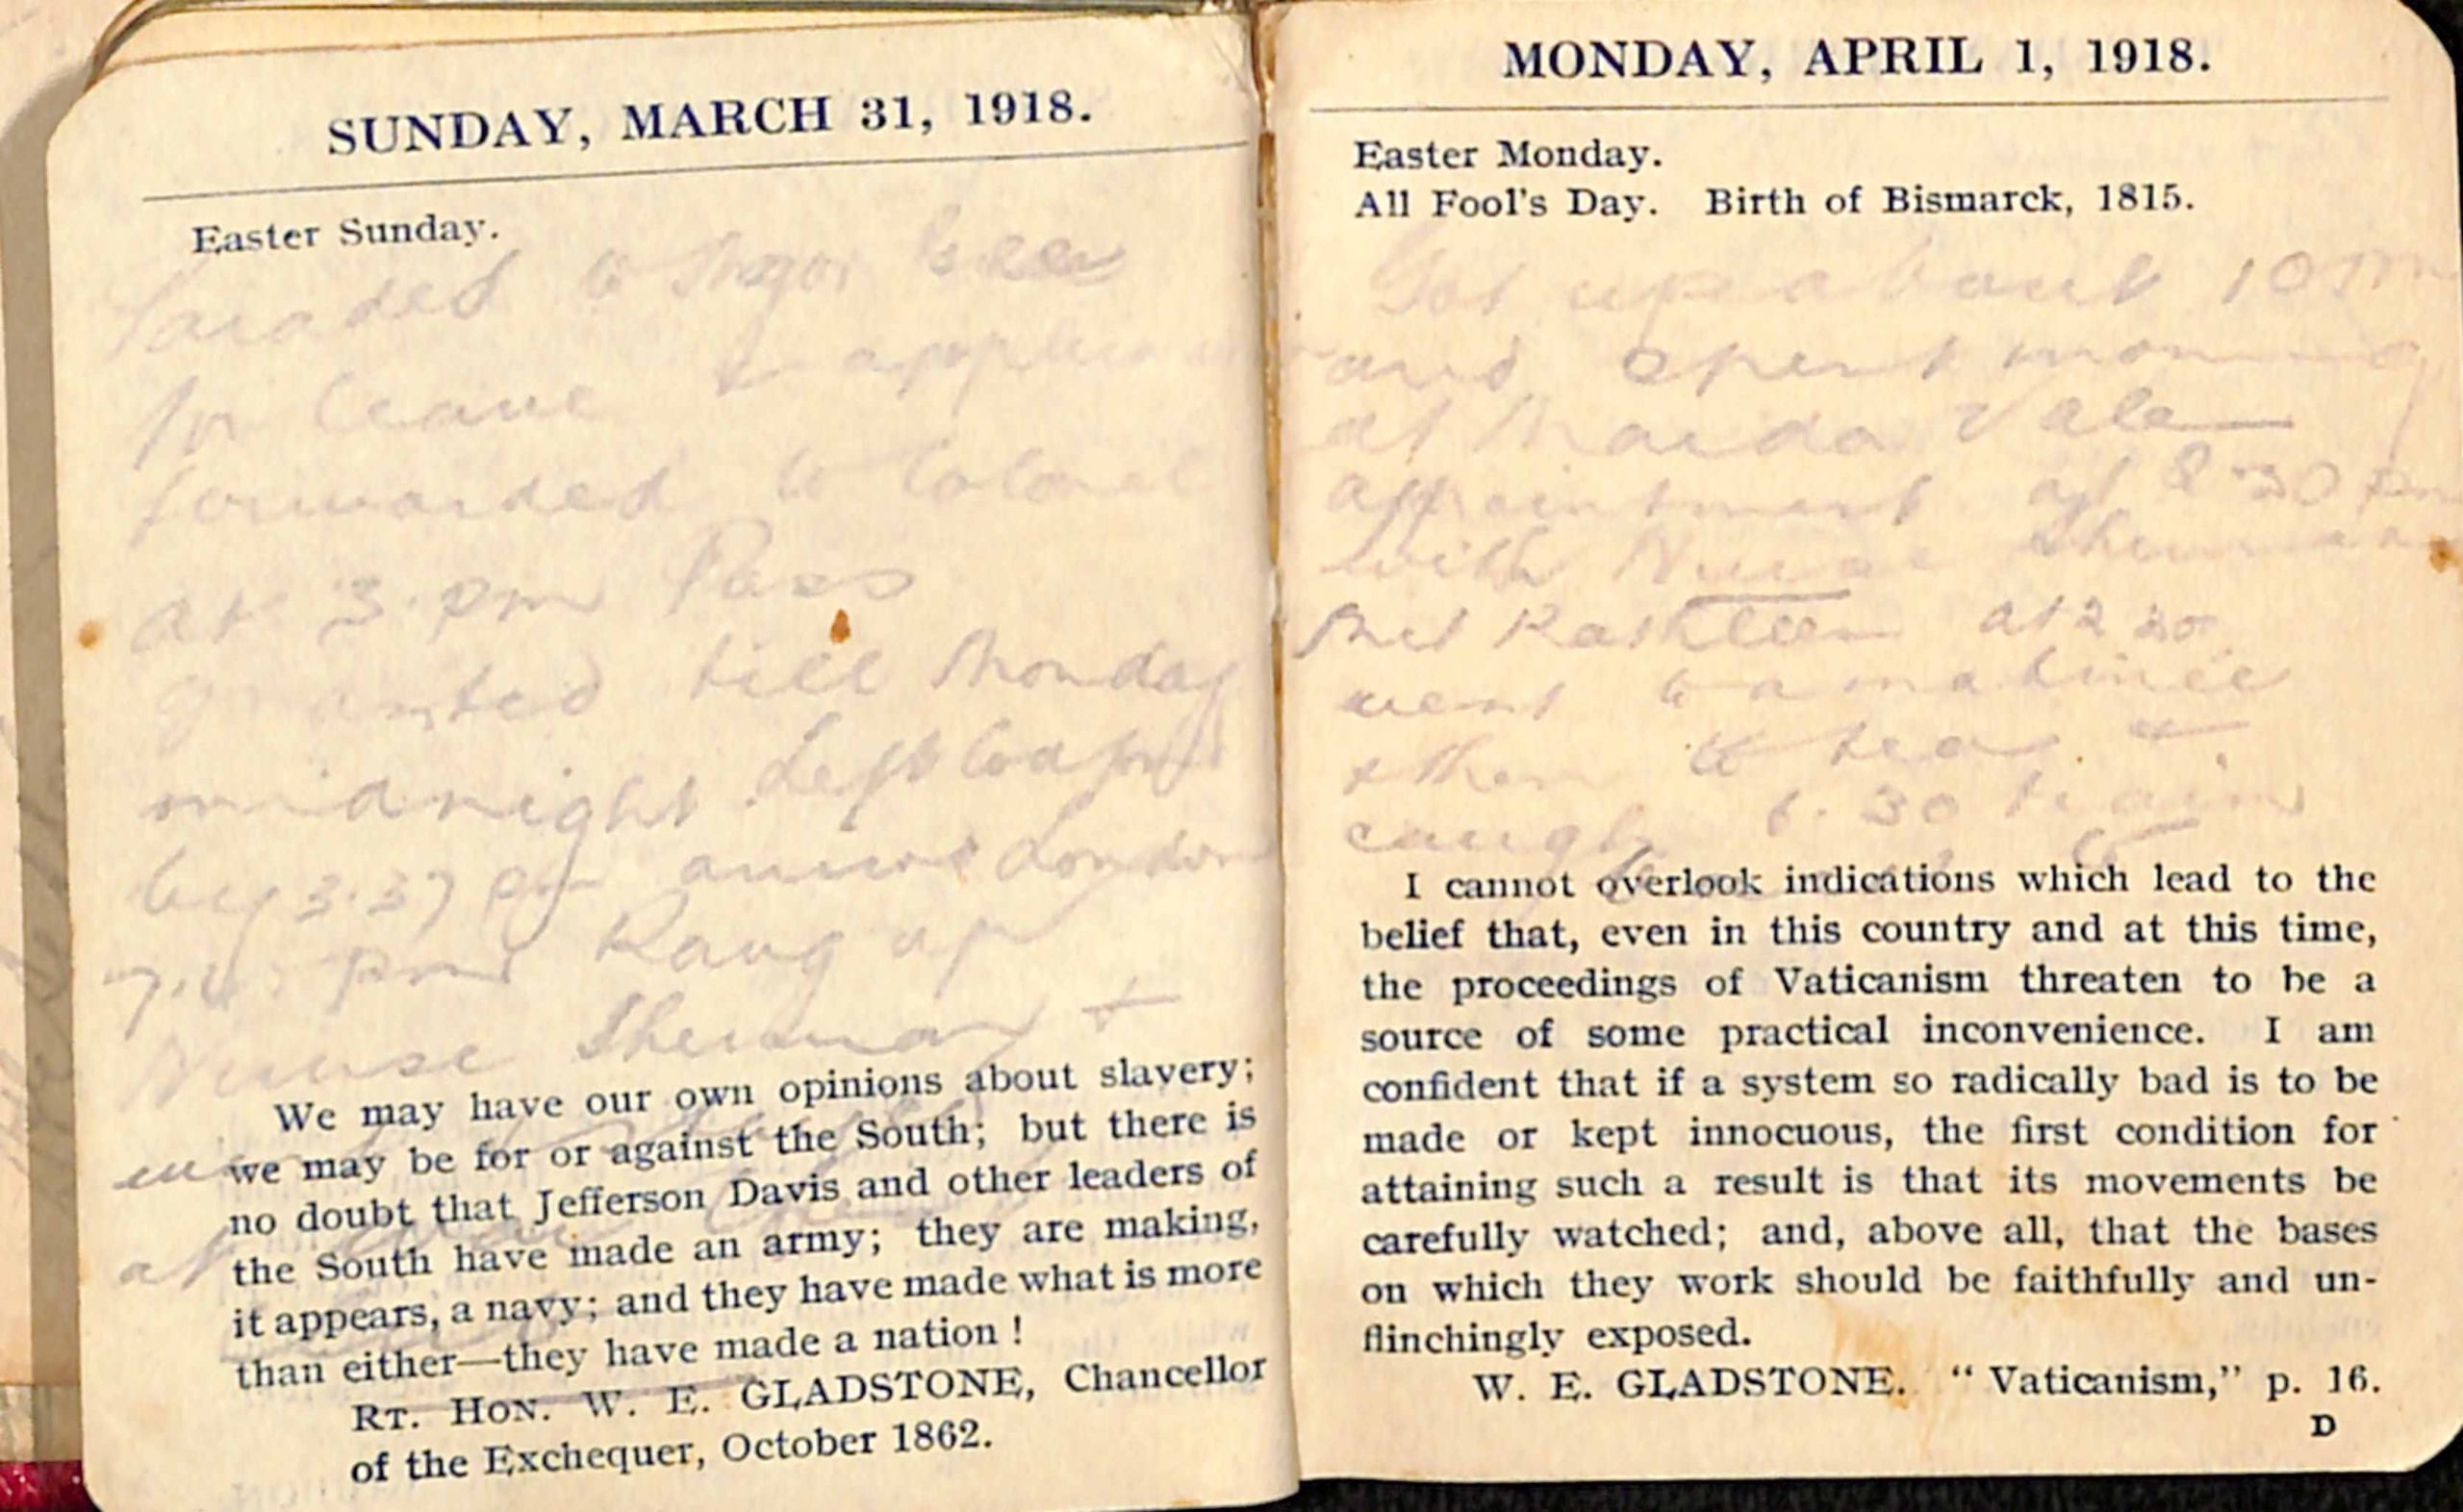 SUNDAY, MARCH 31, 1918.
Easter Sunday.
Paraded to Major
for leave &
forwarded to Colonel
at 3. pm Pass
granted till Monday
midnight. Left
by 3.37 pm London
pm Rang up
Nurse Sherman +
at
We may have our own opinions about slavery;
we may be for or against the South; but there is
no doubt that Jefferson Davis and other leaders of
the South have made an army; they are making,
it appears, a navy; and they have made what is more
than either—they have made a nation !
RT. HON. W. E. GLADSTONE, Chancellor
of the Exchequer, October 1862.
MONDAY, APRIL 1, 1918.
Easter Monday.
All Fool's Day. Birth of Bismarck, 1815.
Got up about 10
and spent morning
at Maida Vale
appointment at 2.30 pm
with Nurse Sherman
Met at 2 30
went to a matinée
& then to tea. &
caught 6.30 train
I cannot overlook indications which lead to the
belief that, even in this country and at this time,
the proceedings of Vaticanism threaten to be a
source of some practical inconvenience. I am
confident that if a system so radically bad is to be
made or kept innocuous, the first condition for
attaining such a result is that its movements be
carefully watched; and, above all, that the bases
on which they work should be faithfully and un-
flinchingly exposed.
W. E. GLADSTONE. "Vaticanism," p. 16.
D